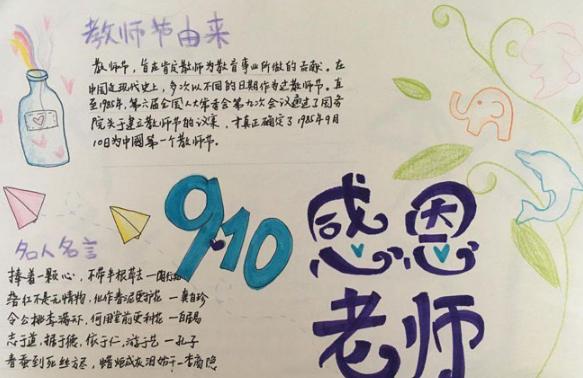 教师节由来
教师节，旨在肯定教师为教育事业所做的贡献。在
中国近现代史上，多次以不同的日期作为过教师节。直
至1985年，第六届全国人大常委会第九次会议通过了国务
院关于建立教师节的议案，才真正确定了1985年9月
10日为中国第一个教师节。
9.10
感恩
老师
名人名言
捧着一颗心，不带半根草去
落红不是无情物，化作春泥更护花 — 龚自珍
令公桃李满天下，何用堂前更种花 — 白居易
志于道，据于德，依于仁，游于艺 — 孔子
春蚕到死丝方尽，蜡炬成灰泪始干 — 李商隐